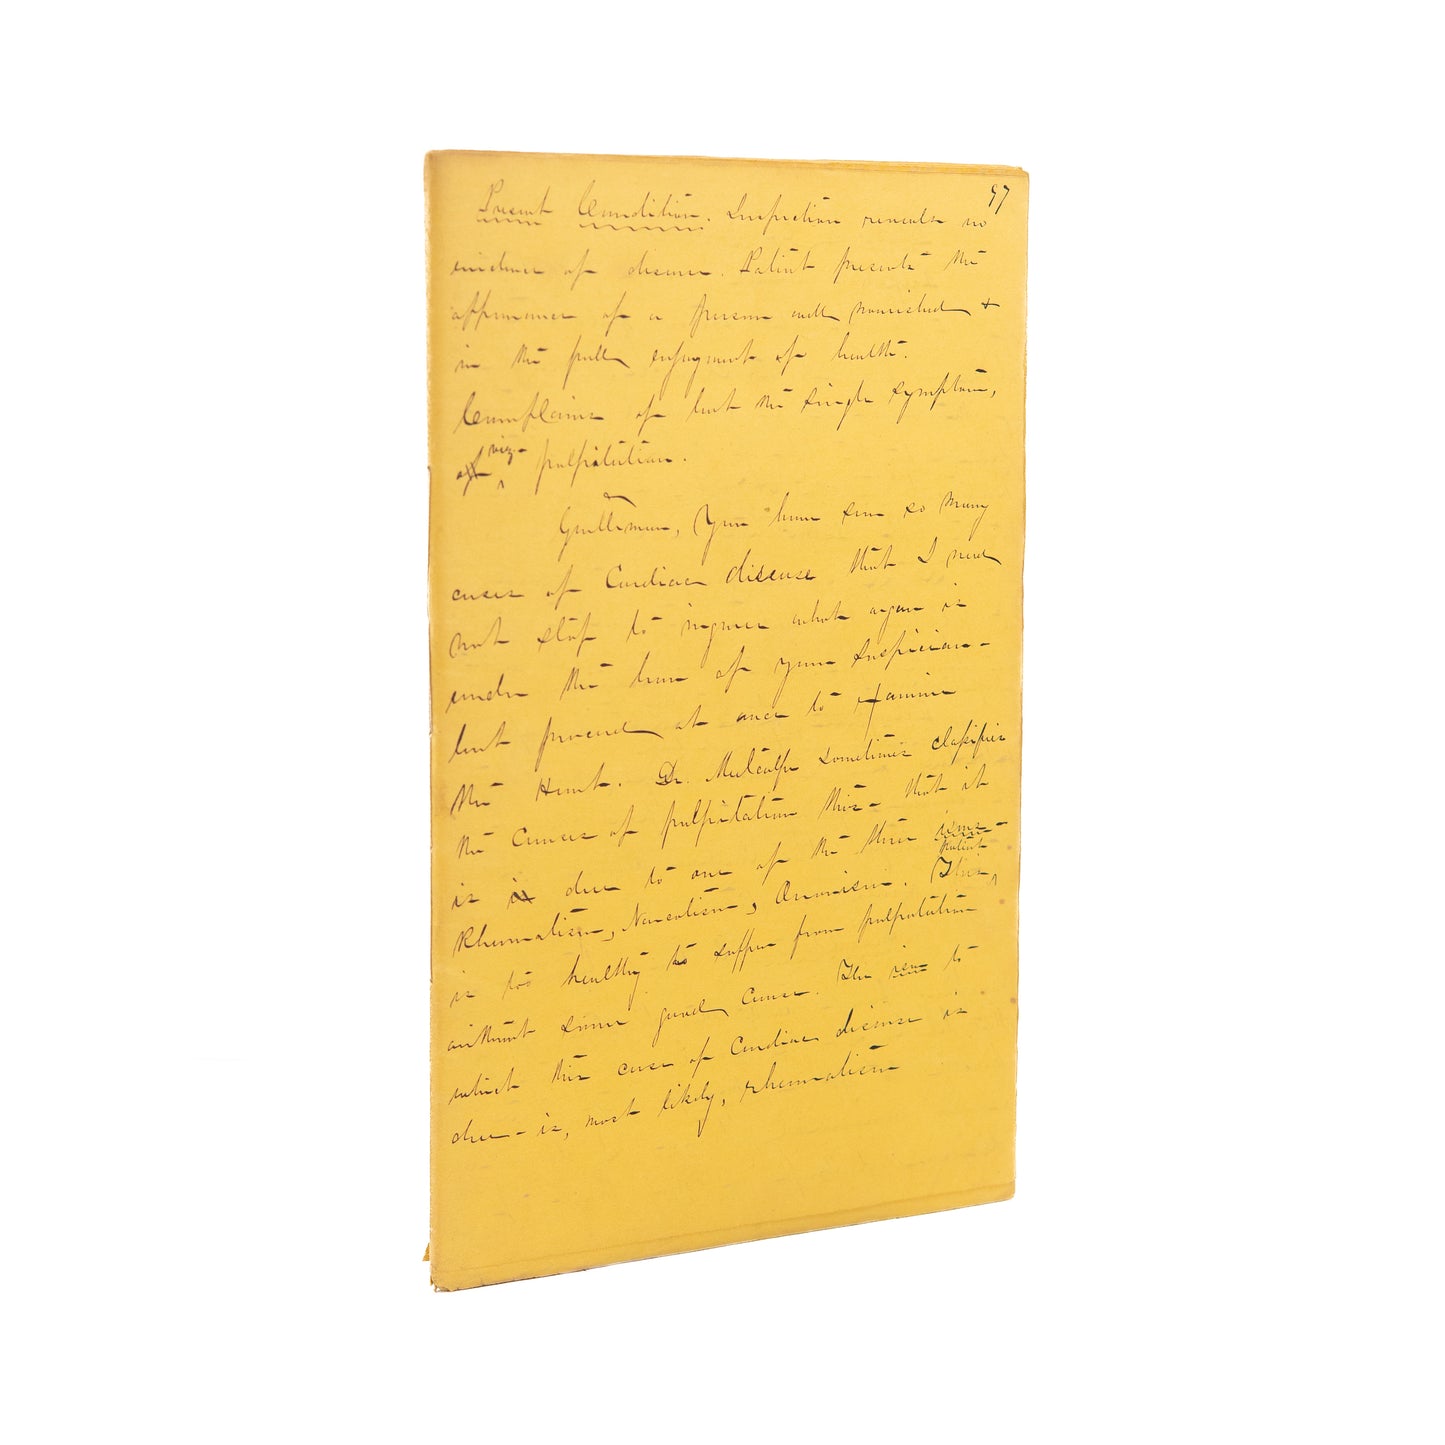 97
Present Condition. Inspection reveals no
evidence of disease. Patient presents the
appearance of a person well nourished +
in the full enjoyment of health.
Complains of but the single symptom,
of viz- palpitation.
Gentlemen, You have seen so many
cases of Cardiac disease that I need
not stop to inquire what organ is
under the ban of your suspicion -
but proceed at once to examine
the Heart. Dr. Metcalfe sometimes classifies
the causes of palpitation thus - that it
is is due to one of the three isms -
Rheumatism, Narcotism, Onanism. This patient
is too healthy to suffer from palpitation
without some good cause. The ism to
which this case of Cardiac disease is
due - is, most likely, rheumatism